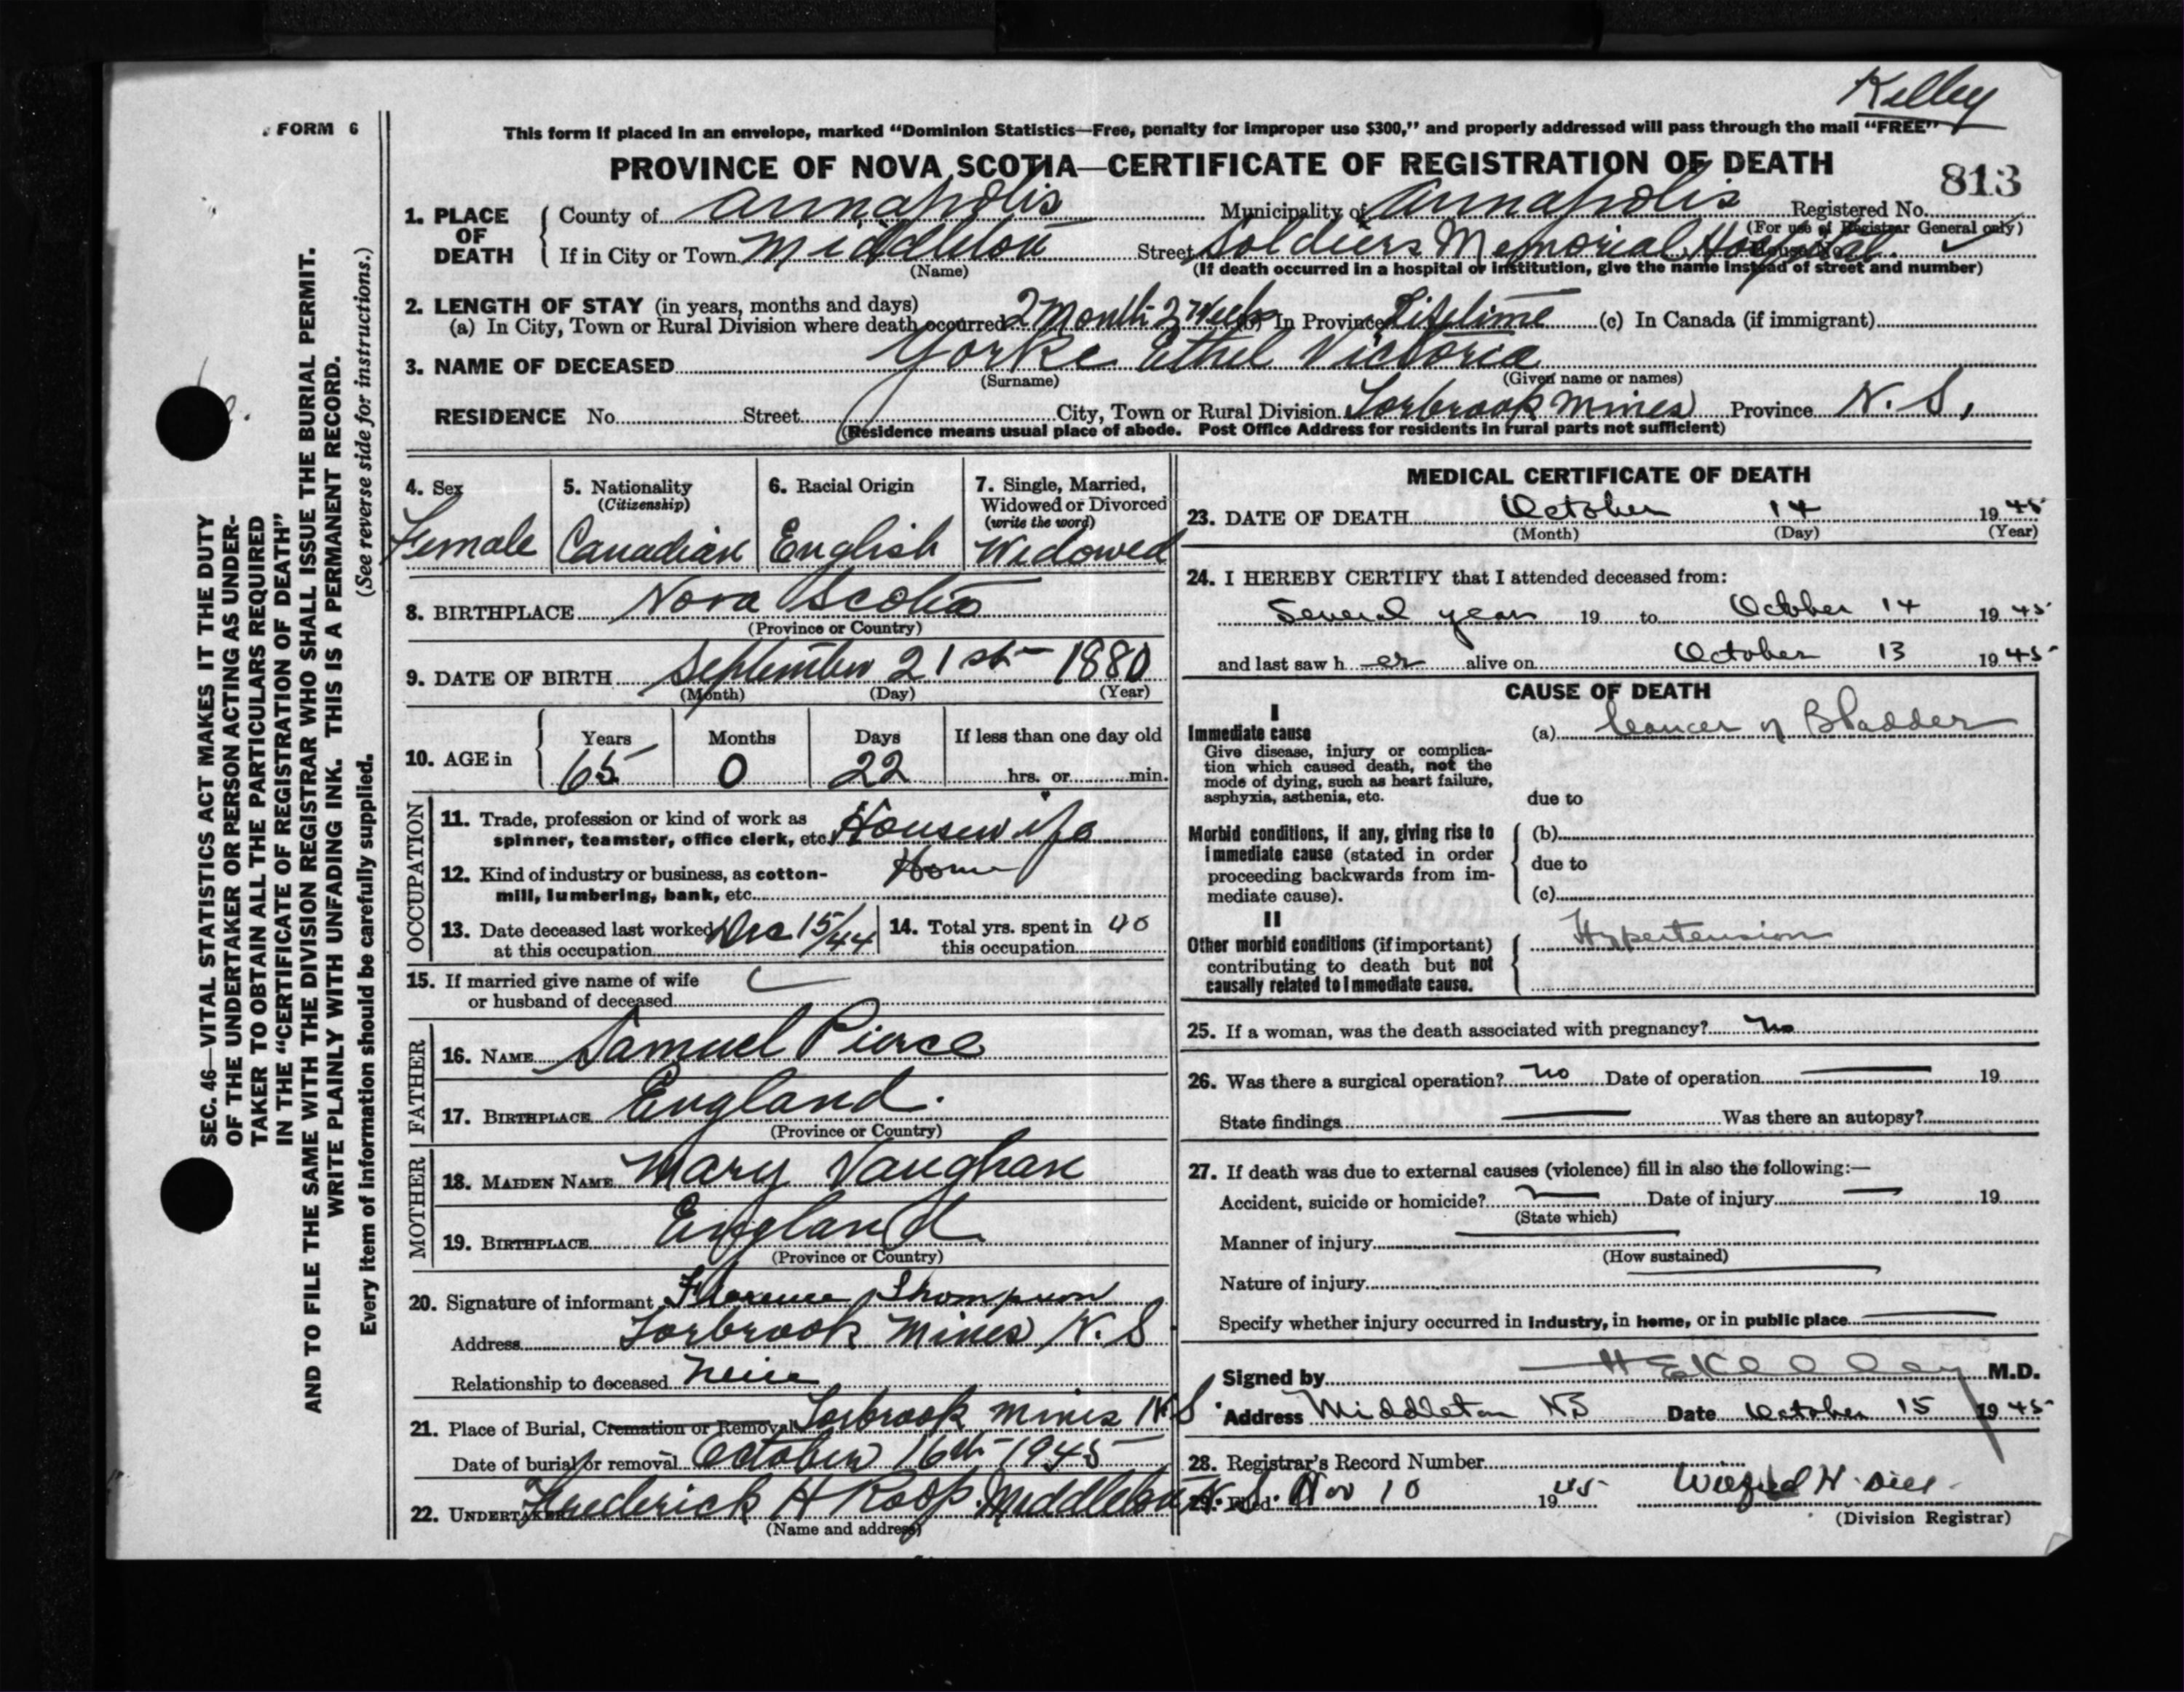 Kelley
FORM 6
This form if placed in an envelope, marked "Dominion Statistics—Free, penalty for improper use $300," and properly addressed will pass through the mail "FREE"
PROVINCE OF NOVA SCOTIA—CERTIFICATE OF REGISTRATION OF DEATH
813
1. PLACE OF DEATH
County of Annapolis Municipality of Annapolis Registered No.
(For use of Registrar General only)
If in City or Town Middleton Street Soldiers Memorial Hospital. House No.
(Name) (If death occurred in a hospital or institution, give the name instead of street and number)
2. LENGTH OF STAY (in years, months and days)
(a) In City, Town or Rural Division where death occurred 2 Month 2 Weeks (b) In Province Lifetime (c) In Canada (if immigrant)
3. NAME OF DECEASED Yorke Ethel Victoria
(Surname) (Given name or names)
RESIDENCE No. Street City, Town or Rural Division Torbrook Mines Province N. S.
(Residence means usual place of abode. Post Office Address for residents in rural parts not sufficient)
4. Sex
Female
5. Nationality
(Citizenship)
Canadian
6. Racial Origin
English
7. Single, Married,
Widowed or Divorced
(write the word)
Widowed
8. BIRTHPLACE Nova Scotia
(Province or Country)
9. DATE OF BIRTH September 21st 1880
(Month) (Day) (Year)
10. AGE in Years Months Days If less than one day old
65 0 22 hrs. or min.
OCCUPATION
11. Trade, profession or kind of work as
spinner, teamster, office clerk, etc. Housewife
12. Kind of industry or business, as cotton-
mill, lumbering, bank, etc. Home
13. Date deceased last worked
at this occupation Dec 15/44
14. Total yrs. spent in
this occupation 40
15. If married give name of wife
or husband of deceased
FATHER
16. NAME Samuel Pierce
17. BIRTHPLACE England.
(Province or Country)
MOTHER
18. MAIDEN NAME Mary Vaughan
19. BIRTHPLACE England
(Province or Country)
20. Signature of informant Florence Thompson
Address Torbrook Mines N. S
Relationship to deceased Neice
21. Place of Burial, Cremation or Removal Torbrook Mines N S
Date of burial or removal October 16th 1945
22. UNDERTAKER Frederick H Roop. Middleton N. S.
(Name and address)
MEDICAL CERTIFICATE OF DEATH
23. DATE OF DEATH October 14 1945
(Month) (Day) (Year)
24. I HEREBY CERTIFY that I attended deceased from:
Several years 19 to October 14 1945
and last saw her alive on October 13 1945
CAUSE OF DEATH
I
Immediate cause
Give disease, injury or complica-
tion which caused death, not the
mode of dying, such as heart failure,
asphyxia, asthenia, etc.
(a) Cancer of Bladder
due to
Morbid conditions, if any, giving rise to
immediate cause (stated in order
proceeding backwards from im-
mediate cause).
(b)
due to
(c)
II
Other morbid conditions (if important)
contributing to death but not
causally related to immediate cause.
Hypertension
25. If a woman, was the death associated with pregnancy? No
26. Was there a surgical operation? No Date of operation 19
State findings Was there an autopsy?
27. If death was due to external causes (violence) fill in also the following:—
Accident, suicide or homicide? Date of injury 19
(State which)
Manner of injury
(How sustained)
Nature of injury
Specify whether injury occurred in industry, in home, or in public place
Signed by H E Kelley M.D.
Address Middleton NS Date October 15 1945
28. Registrar's Record Number
29. Filed Nov 10 1945
(Division Registrar)
SEC. 46—VITAL STATISTICS ACT MAKES IT THE DUTY
OF THE UNDERTAKER OR PERSON ACTING AS UNDER-
TAKER TO OBTAIN ALL THE PARTICULARS REQUIRED
IN THE "CERTIFICATE OF REGISTRATION OF DEATH"
AND TO FILE THE SAME WITH THE DIVISION REGISTRAR WHO SHALL ISSUE THE BURIAL PERMIT.
WRITE PLAINLY WITH UNFADING INK. THIS IS A PERMANENT RECORD.
Every item of information should be carefully supplied. (See reverse side for instructions.)